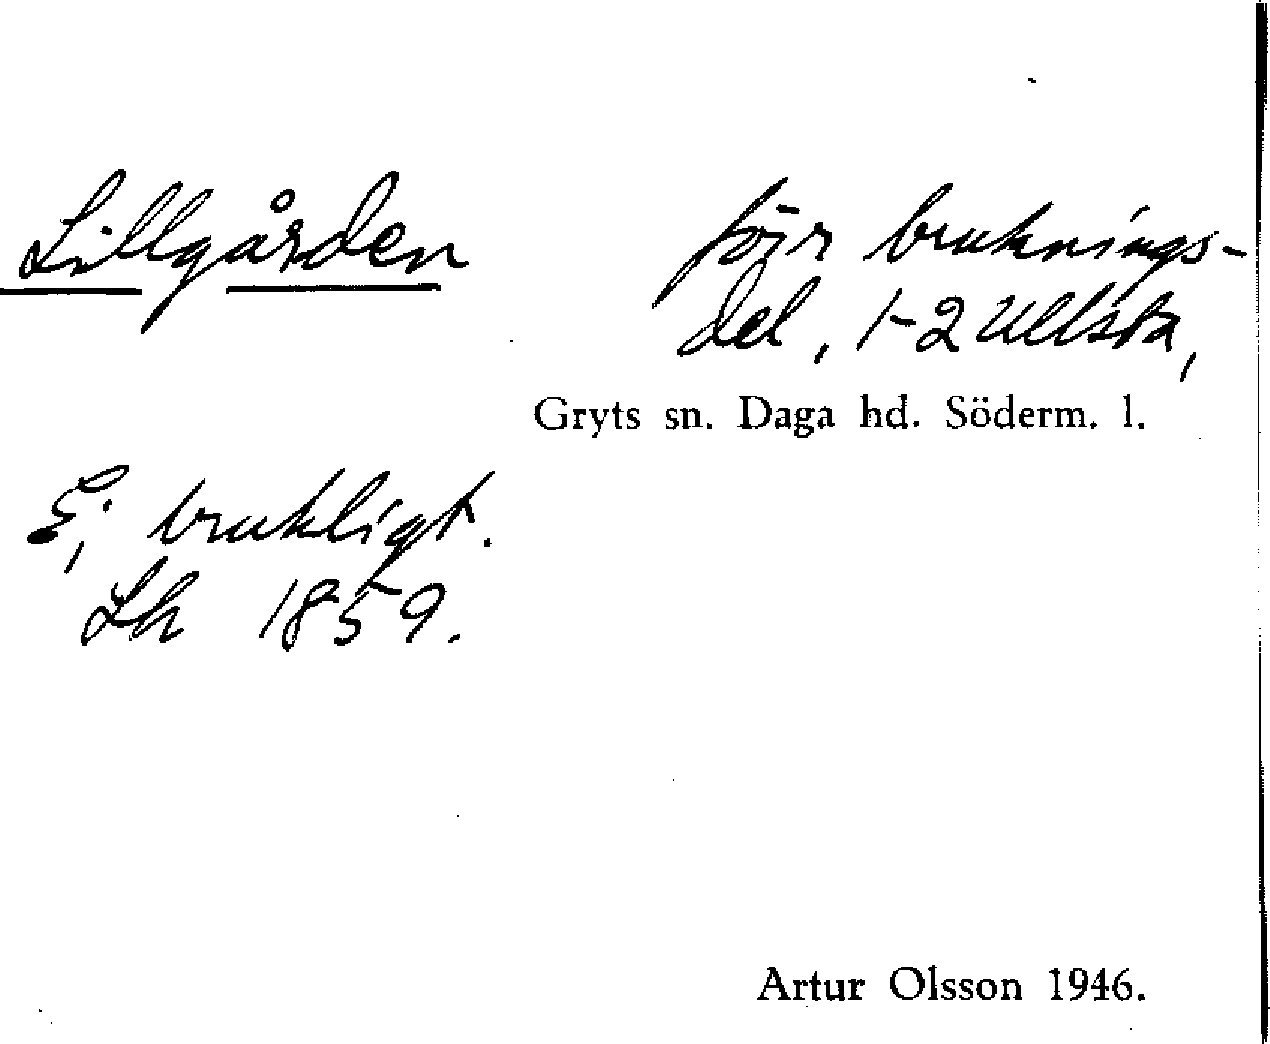 Lillgården
förr bruknings-
del, 1-2 Ullsta,
Gryts sn. Daga hd. Söderm. l.
Ej brukligt.
Lh 1859.
Artur Olsson 1946.